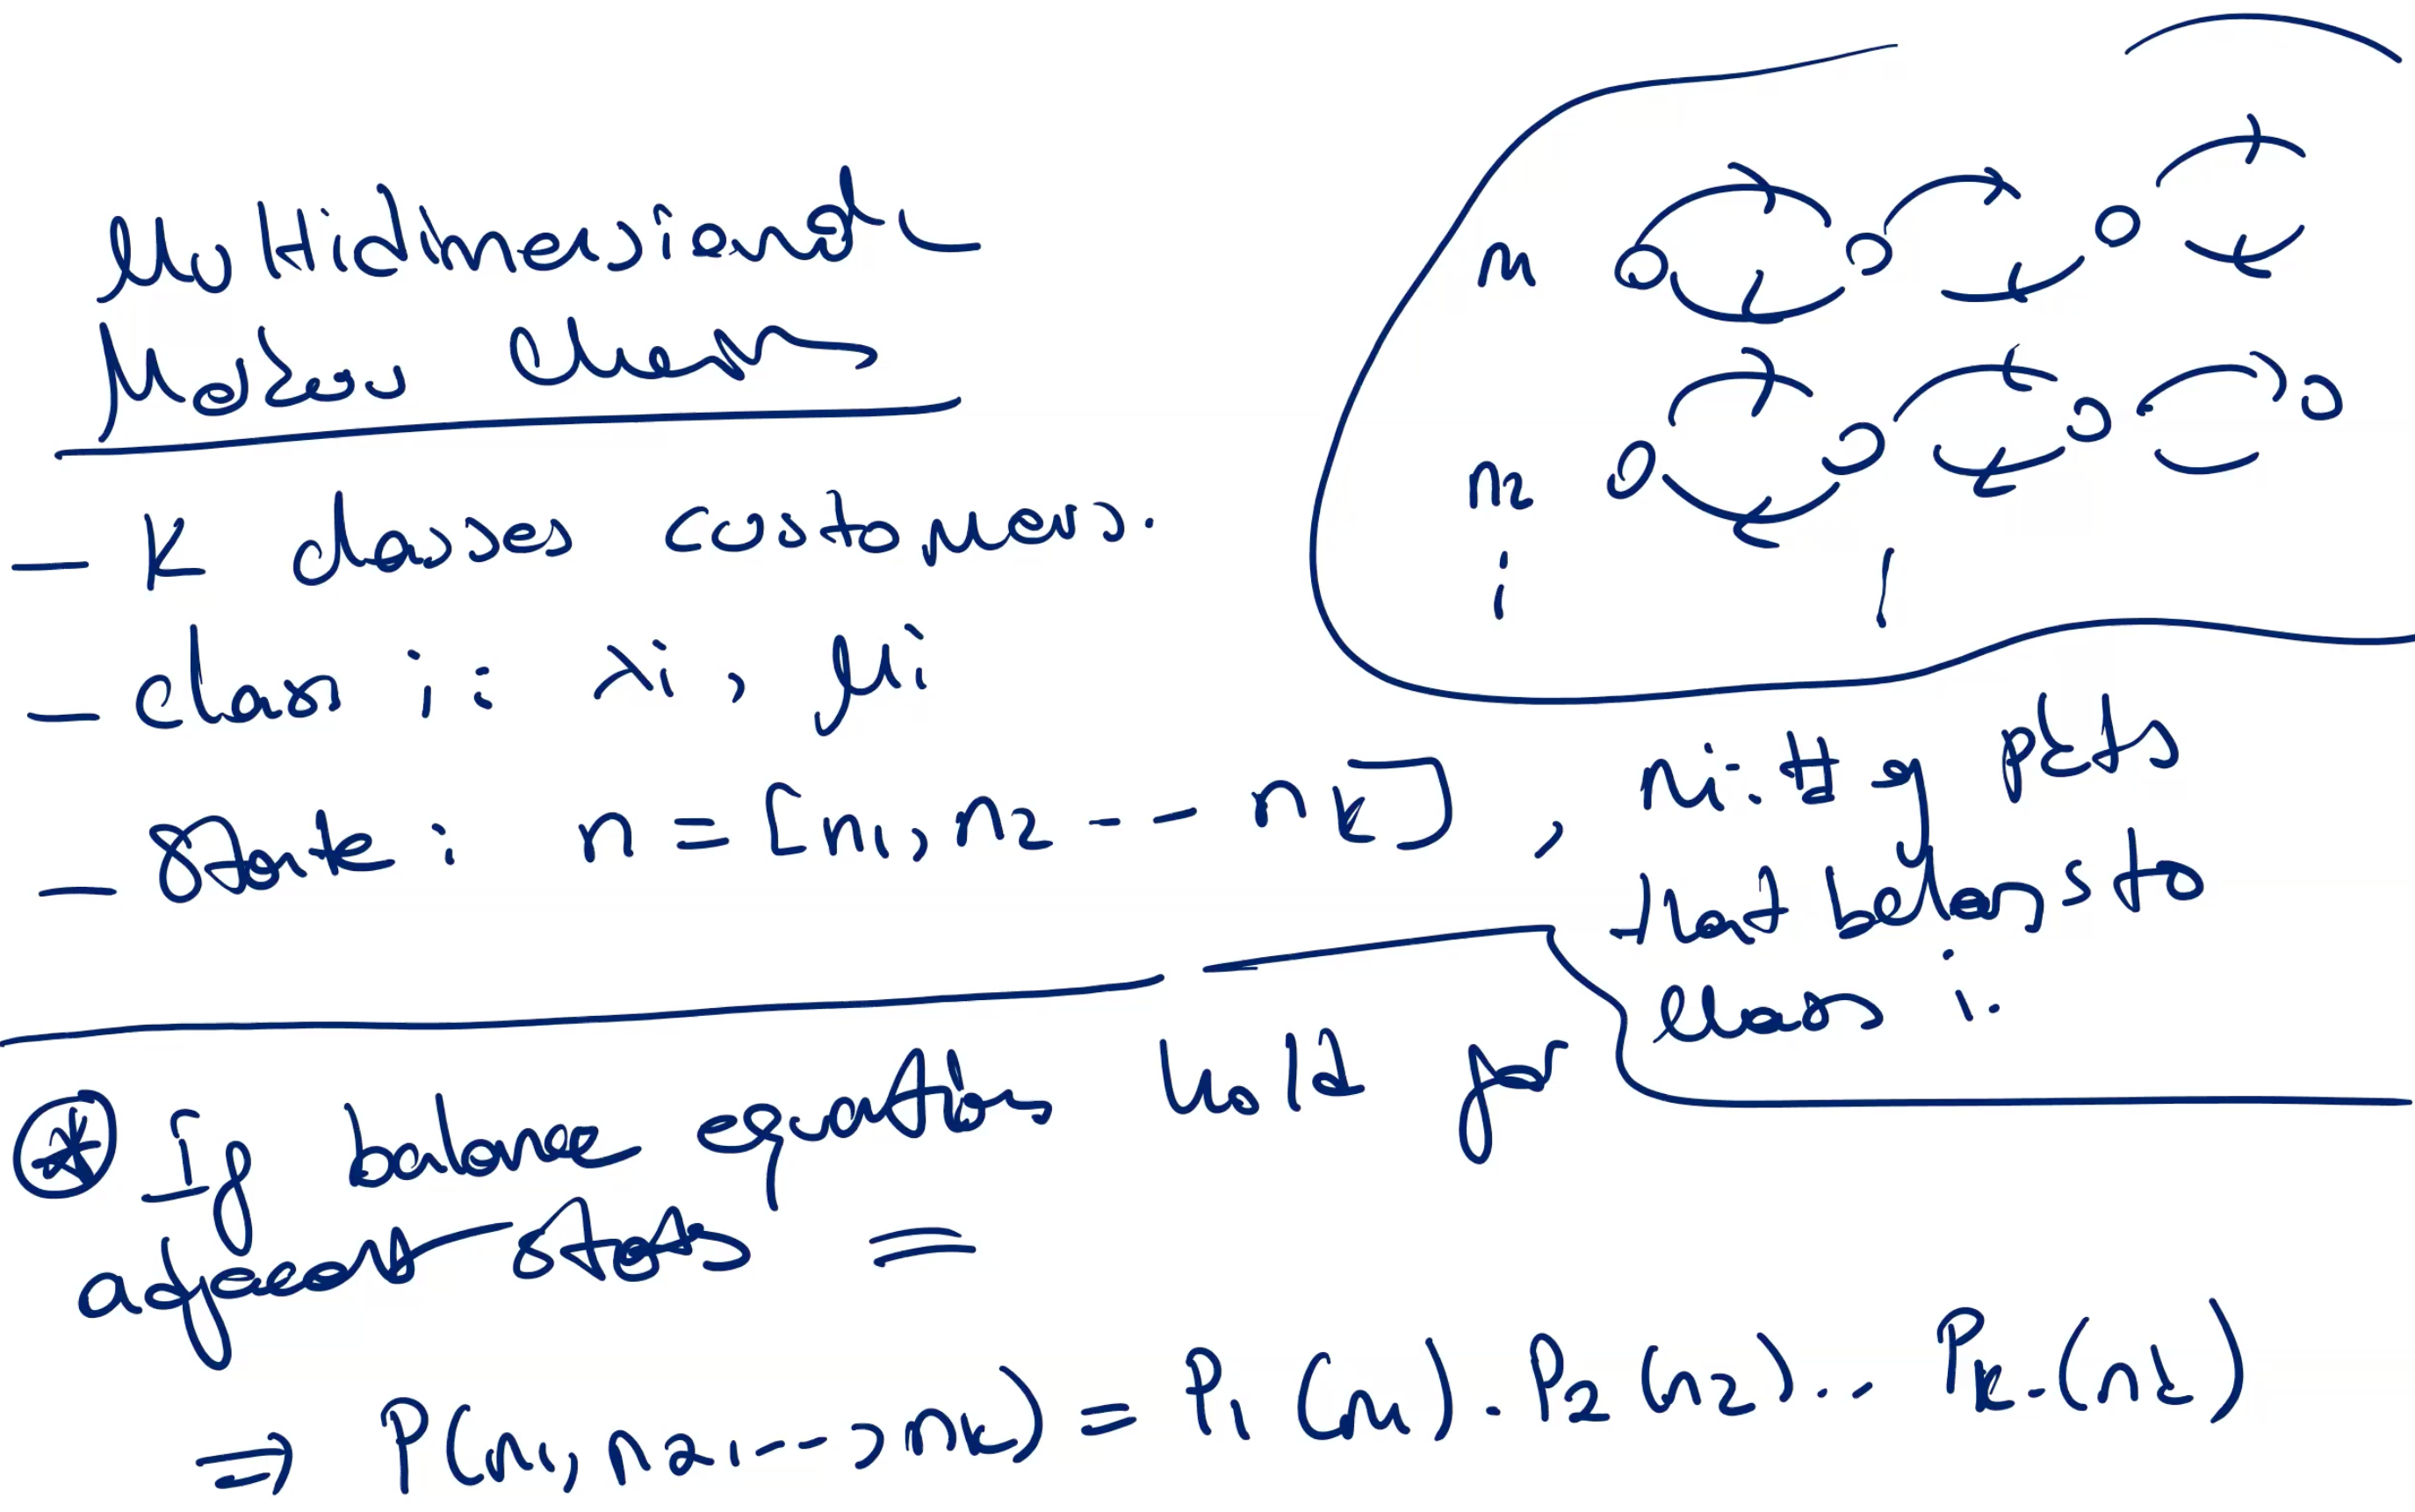 Multidimensional
Markov Chains
- K classes customers.
- class i: λi, μi
- State: n = [n1, n2 --- nk], ni: # of pkts
that belongs to
class i.
n1
n2
⊛ If balance equations hold for
adjacent states =
⇒ P(n1, n2, ---, nk) = P1(n1) . P2(n2) .. Pk.(nk)